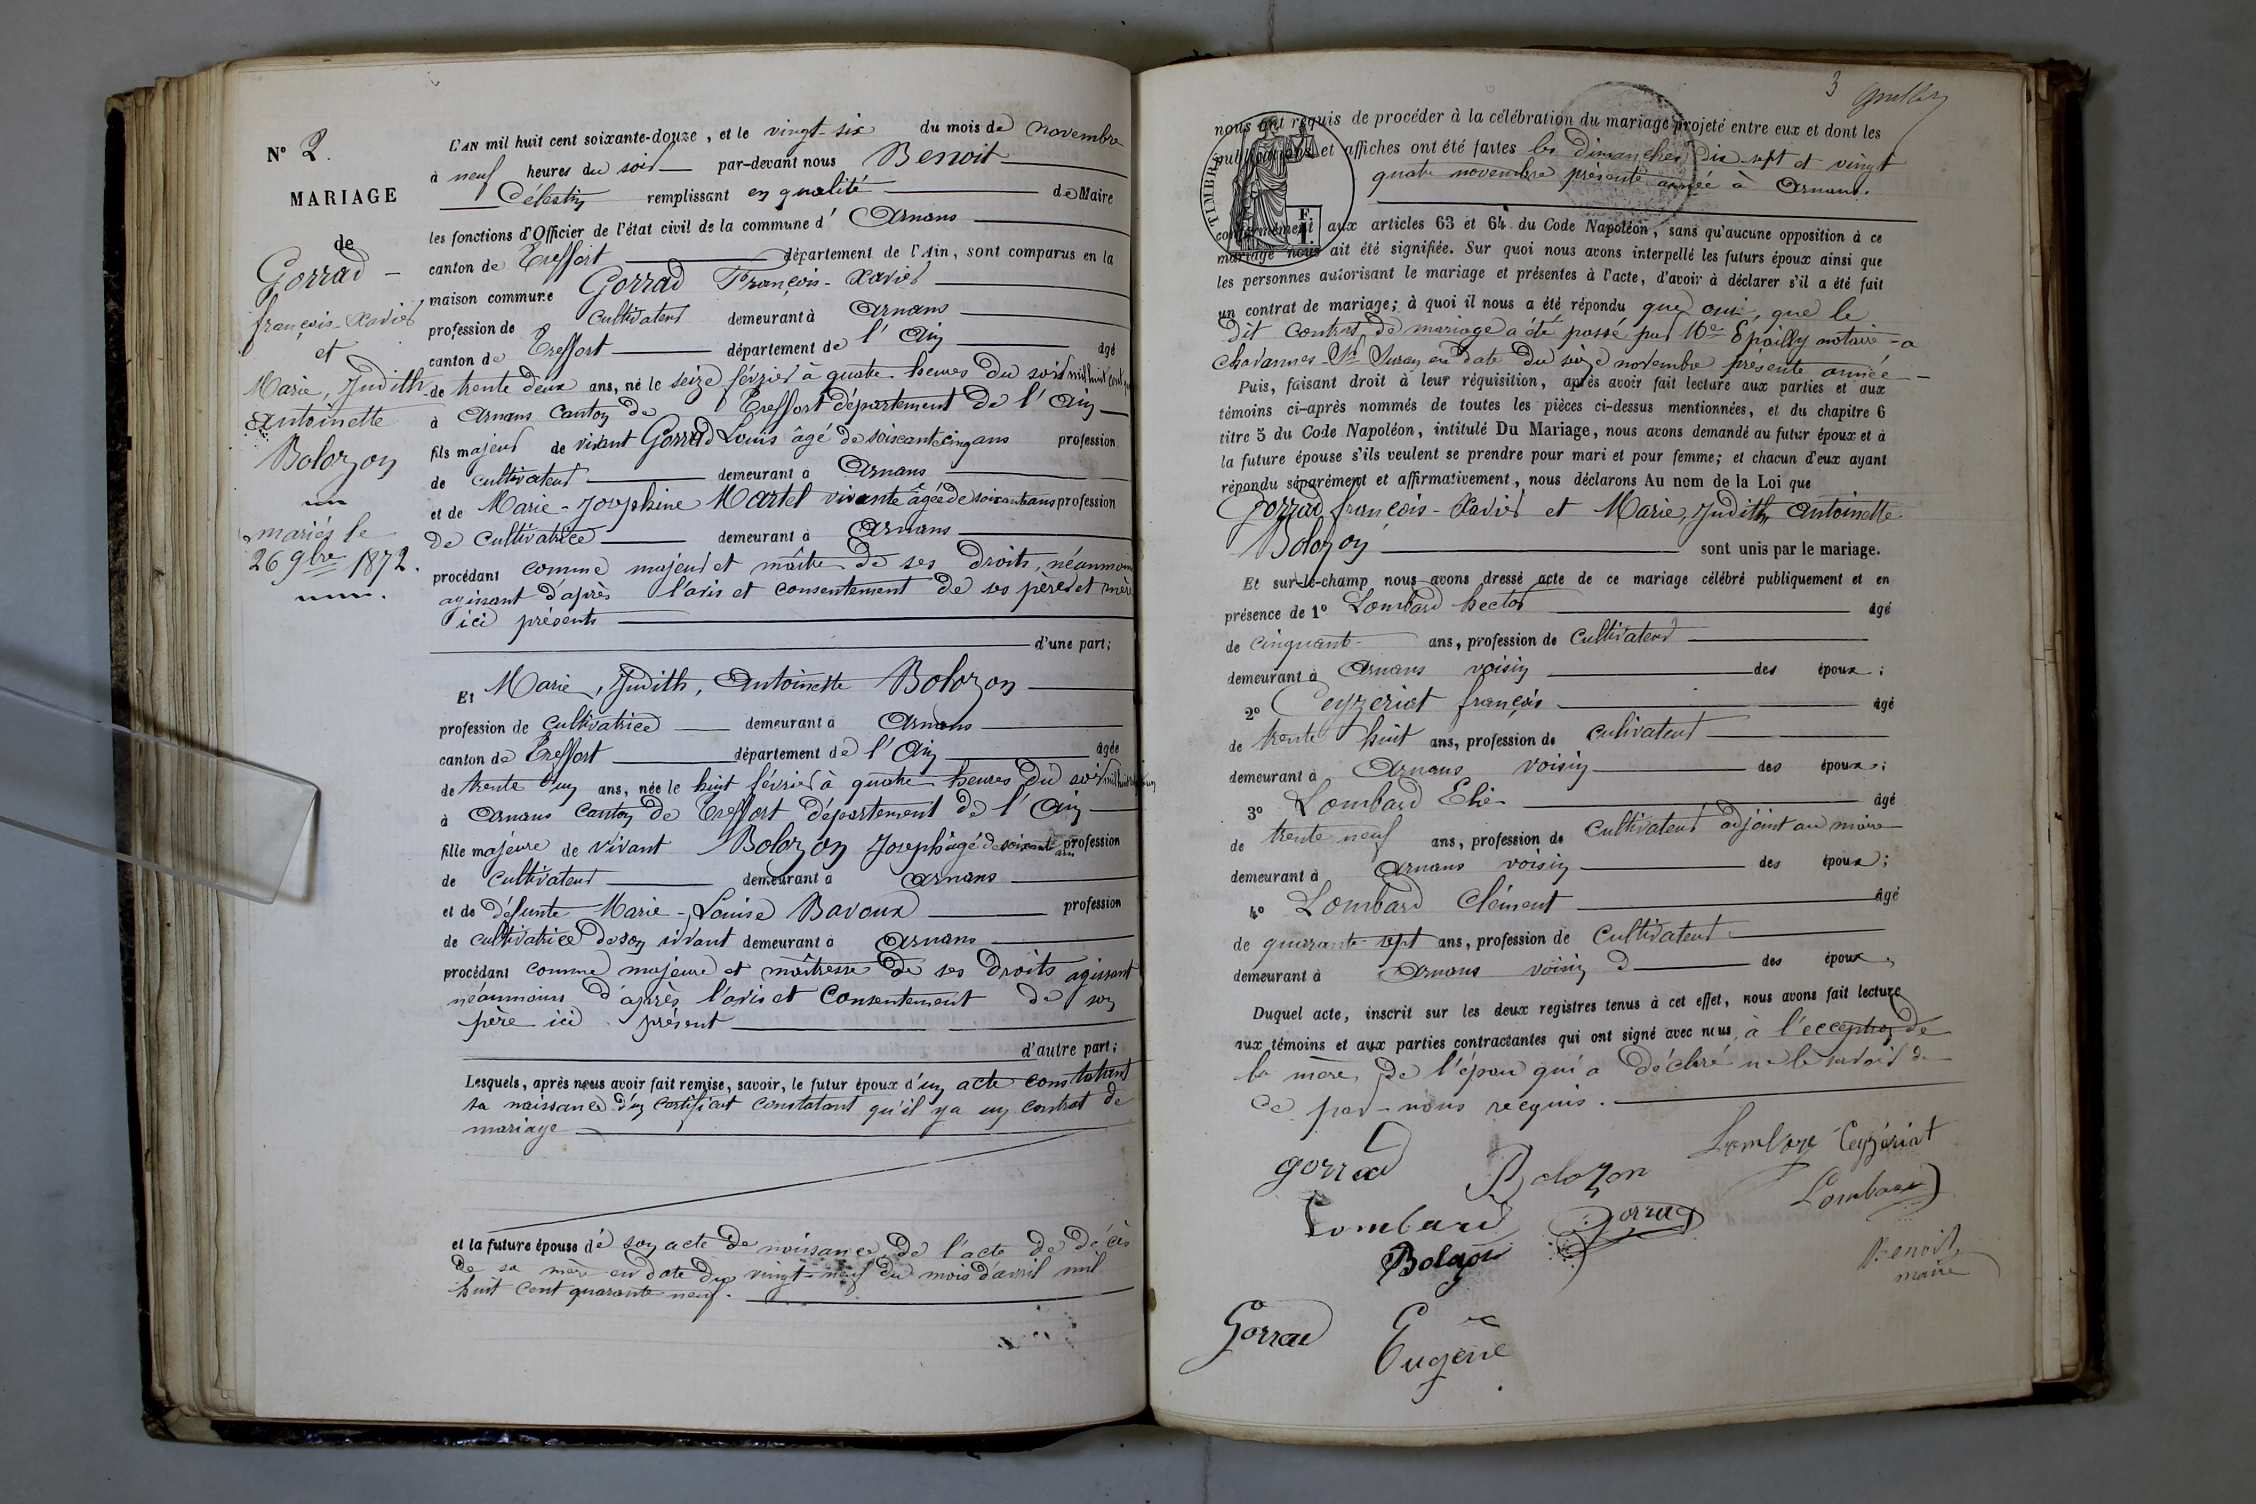 N° 2.
MARIAGE
de
Gorrad
françois-Xavier
et
Marie, Judith
Antoinette
Bolozon
mariés le
26 9bre 1872.
L'AN mil huit cent soixante-douze, et le vingt-six du mois de novembre
à neuf heures du soir par-devant nous Benoit
Célestin remplissant en qualité de Maire
les fonctions d'Officier de l'état civil de la commune d' Arnans
canton de Treffort département de l'Ain, sont comparus en la
maison commune Gorrad François-Xavier
profession de Cultivateur demeurant à Arnans
canton de Treffort département de l'Ain âgé
de trente deux ans, né le seize février à quatre heures du soir mil huit cent
à Arnans Canton de Treffort département de l'Ain
fils majeur de vivant Gorrad Louis âgé de soixante cinq ans profession
de cultivateur demeurant à Arnans
et de Marie-Josephine Martel vivante âgée de soixante ans profession
de Cultivatrice demeurant à Arnans
procédant comme majeur et maître de ses droits, néanmoins
agissant d'après l'avis et consentement de ses père et mère
ici présents
d'une part;
Et Marie, Judith, Antoinette Bolozon
profession de Cultivatrice demeurant à Arnans
canton de Treffort département de l'Ain âgée
de trente un ans, née le huit février à quatre heures du soir
à Arnans Canton de Treffort département de l'Ain
fille majeure de vivant Bolozon Joseph âgé de soixante ans profession
de cultivateur demeurant à Arnans
et de défunte Marie-Louise Bavoux profession
de cultivatrice de son vivant demeurant à Arnans
procédant comme majeure et maîtresse de ses droits agissant
néanmoins d'après l'avis et Consentement de son
père ici présent
d'autre part;
Lesquels, après nous avoir fait remise, savoir, le futur époux d'un acte constatant
sa naissance d'un certificat constatant qu'il y a un contrat de
mariage
et la future épouse de son acte de naissance, de l'acte de décès
de sa mère en date du vingt-neuf du mois d'avril mil
huit cent quarante neuf.
3
nous ont requis de procéder à la célébration du mariage projeté entre eux et dont les
publications et affiches ont été faites les dimanches dix-sept et vingt
quatre novembre présente année à Arnans.
TIMBRE
conformément aux articles 63 et 64 du Code Napoléon, sans qu'aucune opposition à ce
mariage nous ait été signifiée. Sur quoi nous avons interpellé les futurs époux ainsi que
les personnes autorisant le mariage et présentes à l'acte, d'avoir à déclarer s'il a été fait
un contrat de mariage; à quoi il nous a été répondu que oui, que le
dit contrat de mariage a été passé par Me Epailly notaire a
Chavannes Sr Suran en date du seize novembre présente année
Puis, faisant droit à leur réquisition, après avoir fait lecture aux parties et aux
témoins ci-après nommés de toutes les pièces ci-dessus mentionnées, et du chapitre 6
titre 5 du Code Napoléon, intitulé Du Mariage, nous avons demandé au futur époux et à
la future épouse s'ils veulent se prendre pour mari et pour femme; et chacun d'eux ayant
répondu séparément et affirmativement, nous déclarons Au nom de la Loi que
Gorrad françois-Xavier et Marie, Judith, Antoinette
Bolozon sont unis par le mariage.
Et sur-le-champ nous avons dressé acte de ce mariage célébré publiquement et en
présence de 1° Lombard hector âgé
de cinquante ans, profession de Cultivateur
demeurant à Arnans voisin des époux;
2° Ceyzeriat françois âgé
de trente huit ans, profession de cultivateur
demeurant à Arnans voisin des époux;
3° Lombard Elie âgé
de trente neuf ans, profession de Cultivateur adjoint au maire
demeurant à Arnans voisin des époux;
4° Lombard Clément âgé
de quarante sept ans, profession de Cultivateur
demeurant à Arnans voisin des époux,
Duquel acte, inscrit sur les deux registres tenus à cet effet, nous avons fait lecture
aux témoins et aux parties contractantes qui ont signé avec nous, à l'exception de
la mère de l'époux qui a déclaré ne le savoir de
ce par-nous requis.
gorrad Bolozon Lombard Ceyzériat
Lombard Gorrad Lombard
Bolozon Benoit
maire
Gorrad Eugène